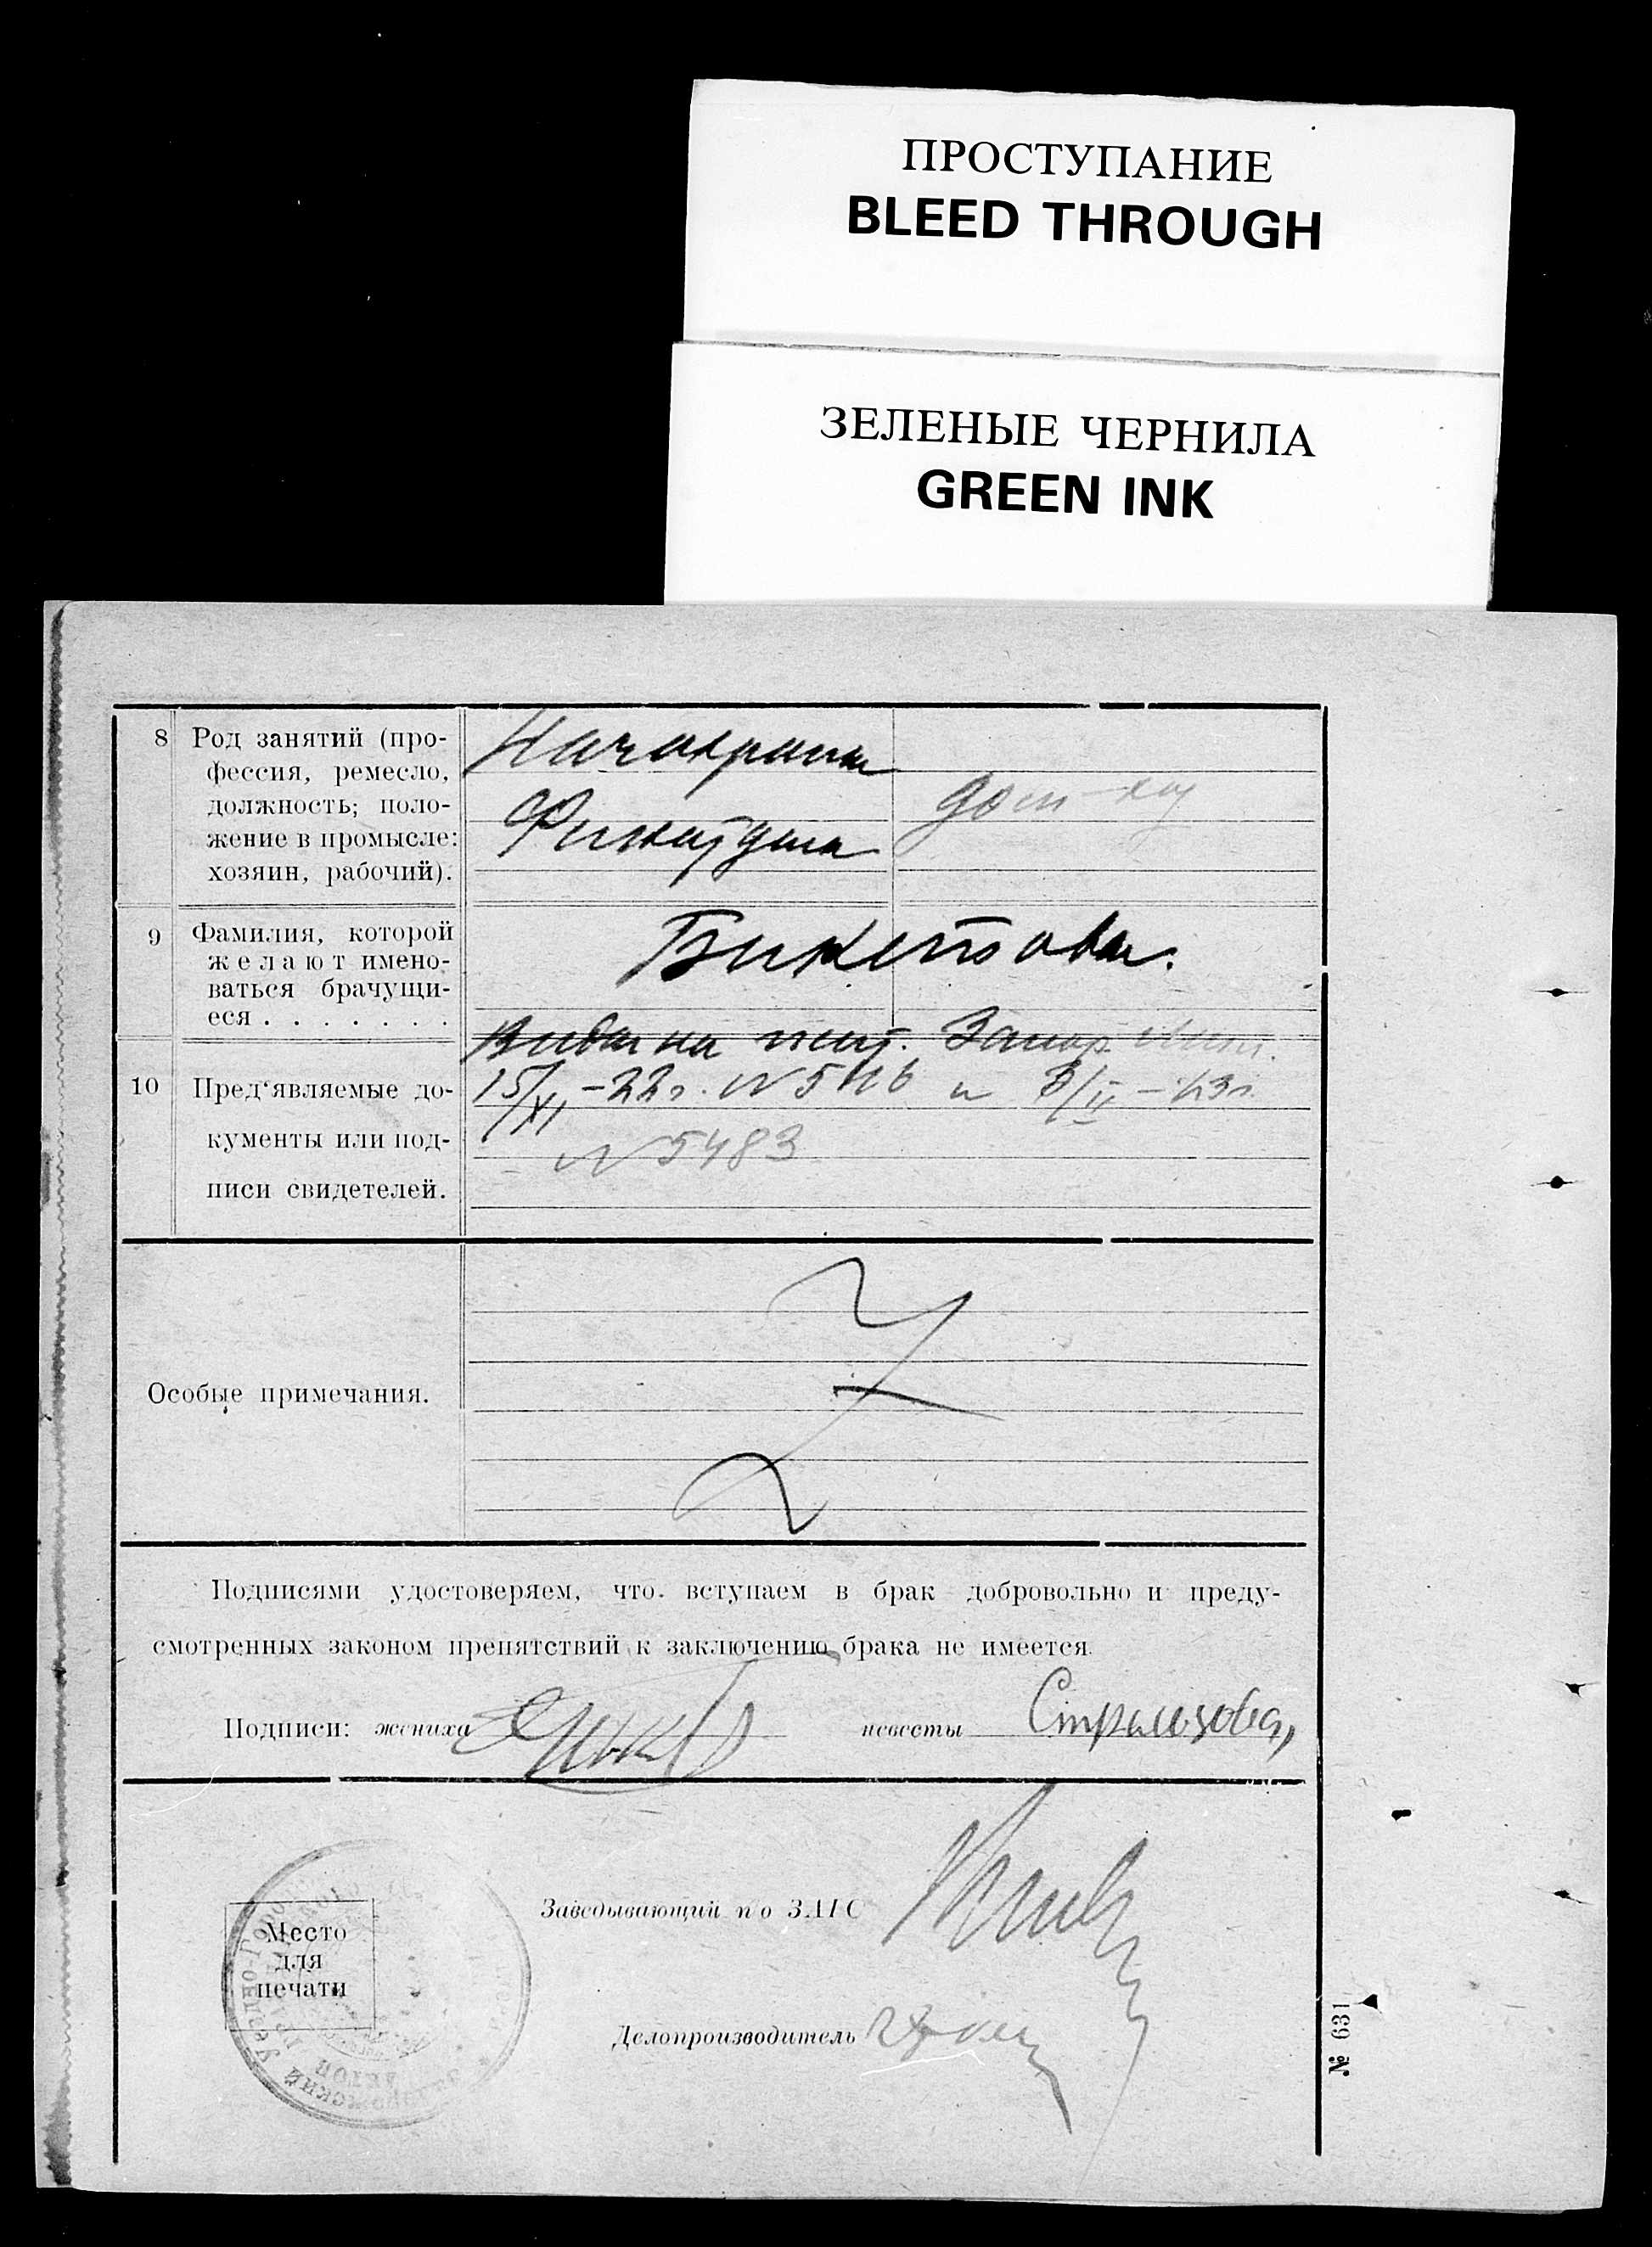 ПРОСТУПАНИЕ
BLEED THROUGH
ЗЕЛЕНЫЕ ЧЕРНИЛА
GREEN INK
8 Род занятий (про-
фессия, ремесло,
должность; поло-
жение в промысле:
хозяин, рабочий).
9 Фамилия, которой
желают имено-
ваться брачущи-
еся . . . . . . .
Бикетова.
Вида на жит. Запор.
10 Пред'являемые до-
кументы или под-
писи свидетелей.
15/XI -22г. №
и 3/II -23г.
№5483
Особые примечания.
Подписями удостоверяем, что вступаем в брак добровольно и преду-
смотренных законом препятствий к заключению брака не имеется.
Подписи: жениха
невесты
Заведывающий по ЗАГС
Место
для
печати
Делопроизводитель
№ 631